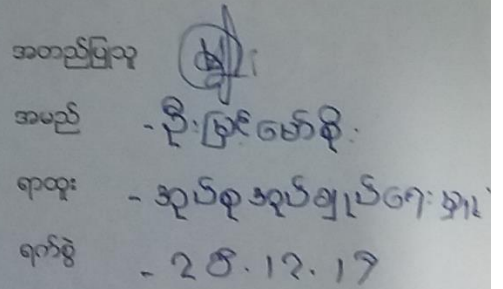 အတည်ပြုသူ
အမည် - ဦးမြင့်မော်စိုး
ရာထူး - အုပ်စုအုပ်ချုပ်ရေးမှူး
ရက်စွဲ - 28.12.19